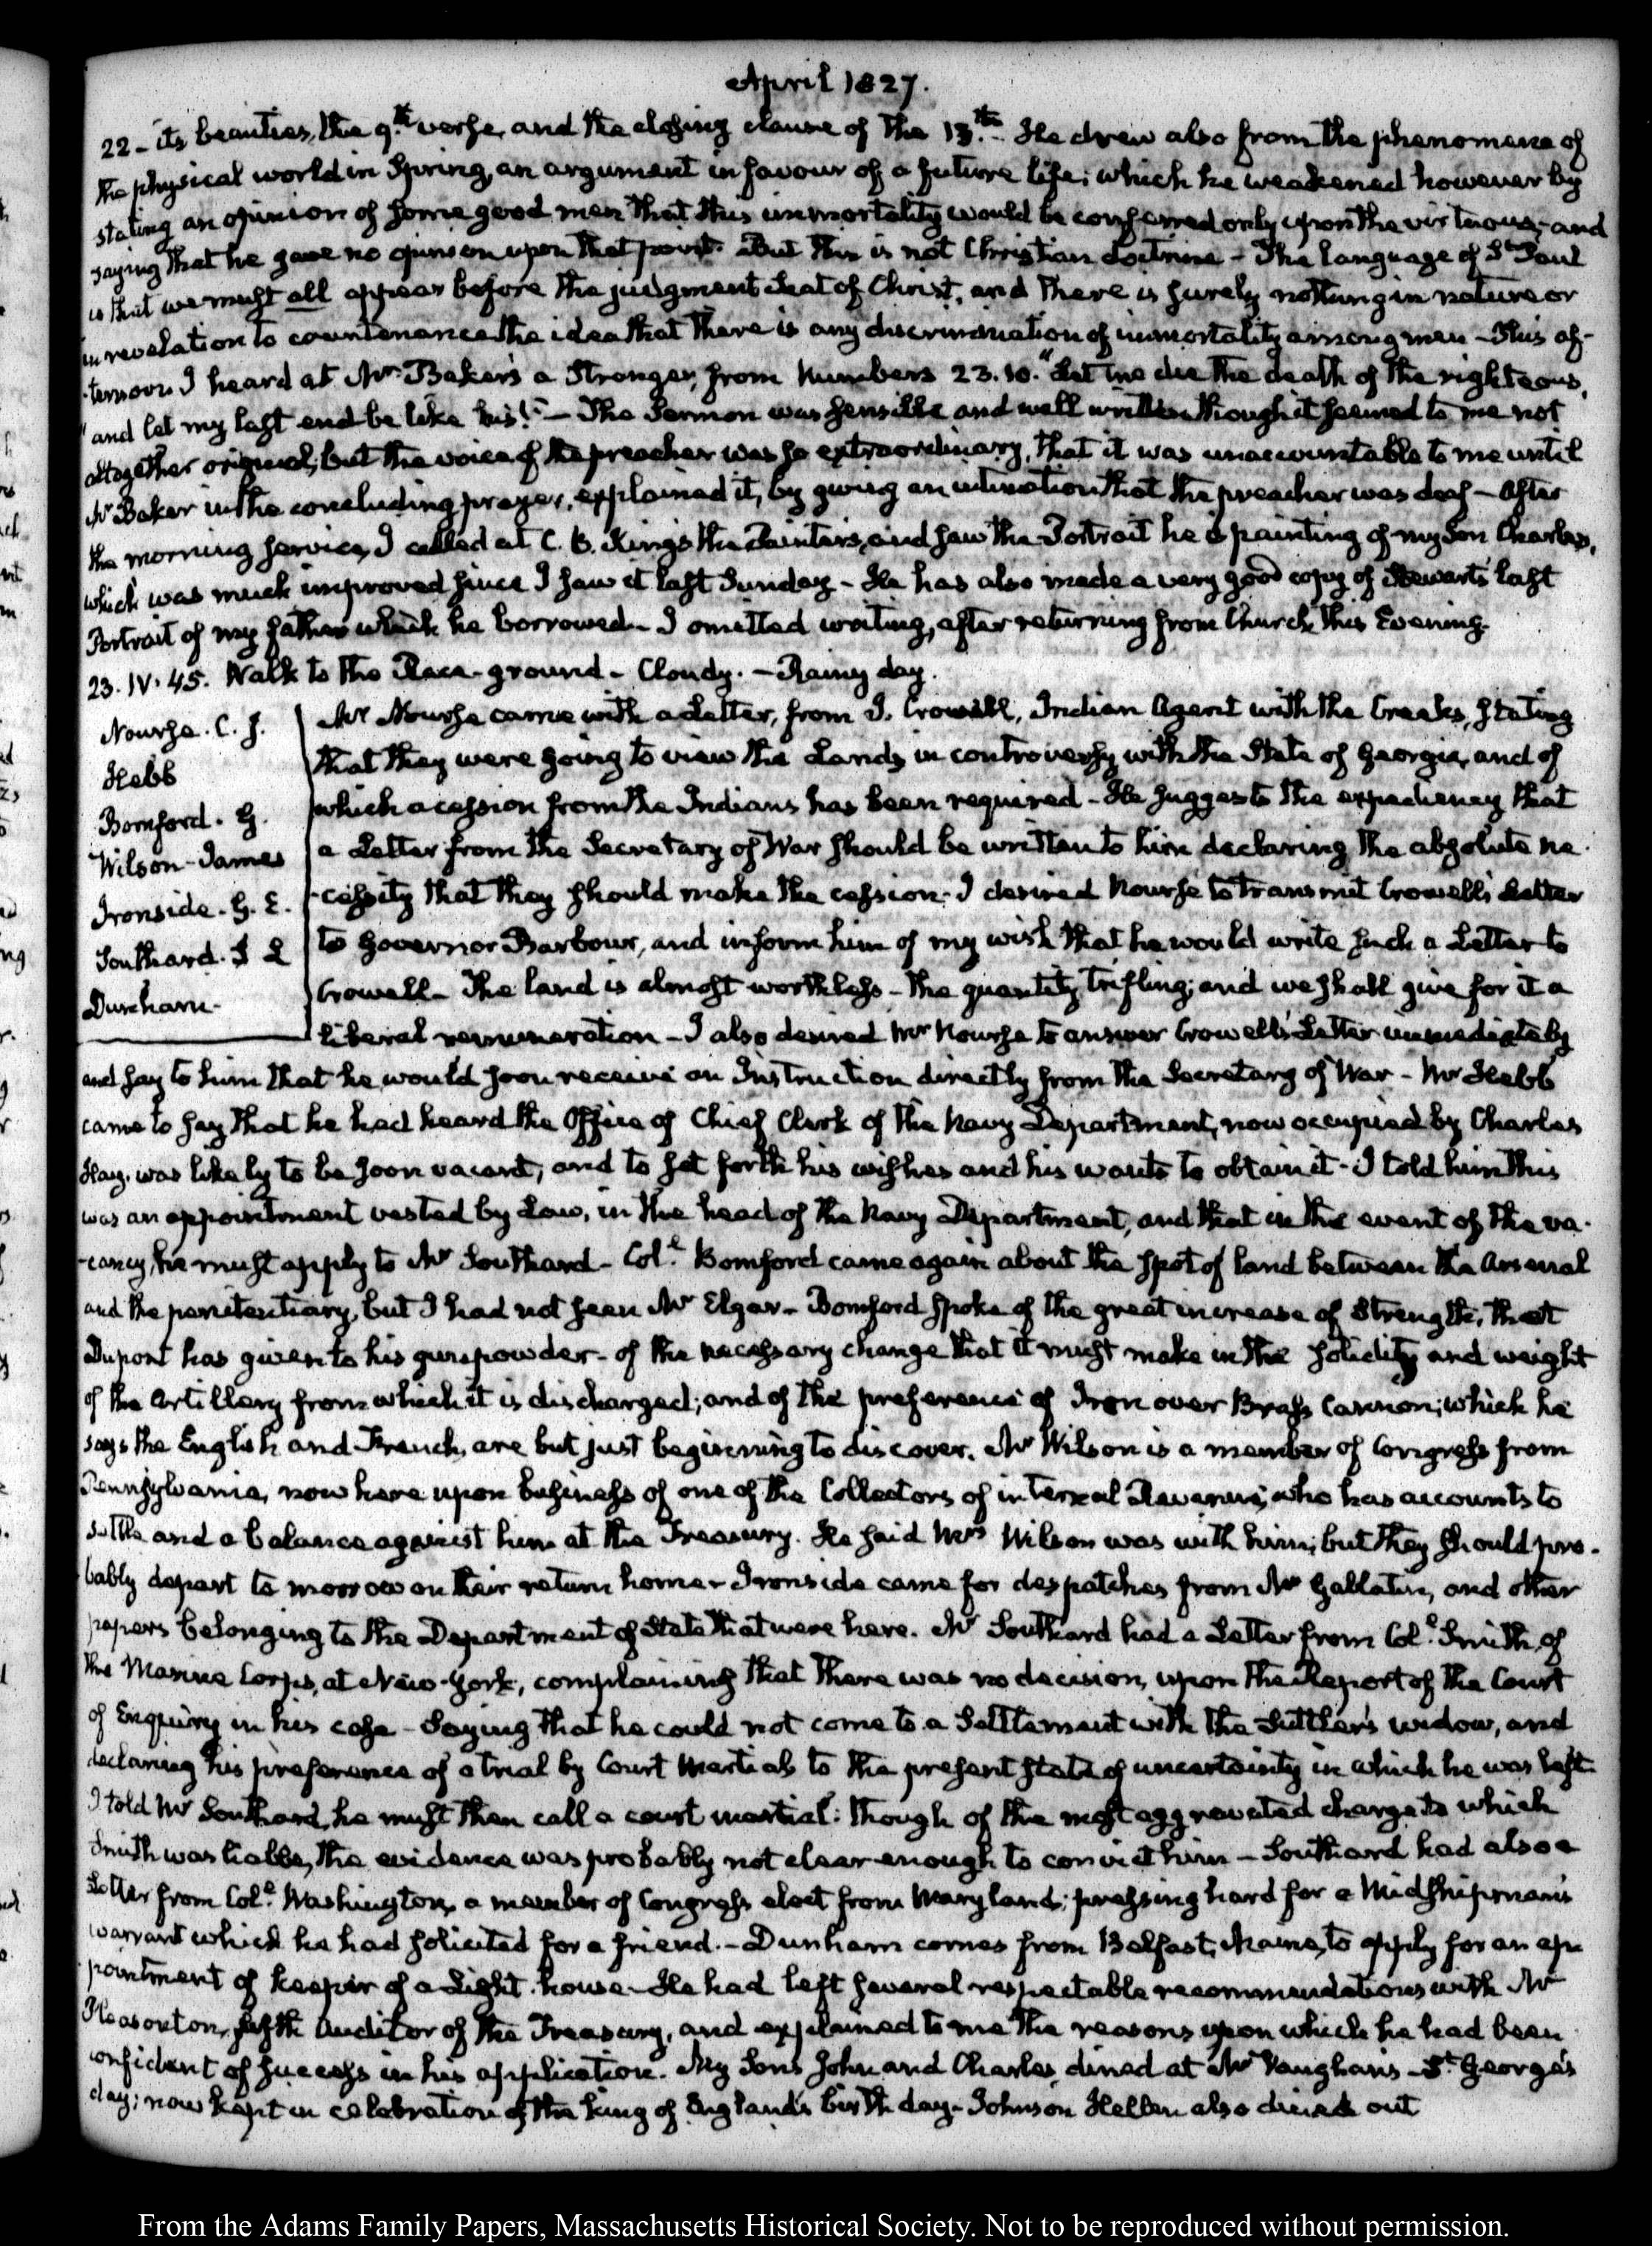 April 1827.
22 - its beauties, the 9th verse, and the closing clause of the 13th - He drew also from the phenomena of
the physical world in Spring, an argument in favour of a future life; which he weakened however by
stating an opinion of some good men that this immortality would be conferred only upon the virtuous, and
saying that he gave no opinion upon that point. But this is not Christian doctrine - The language of St Paul
is that we must all appear before the judgment seat of Christ, and there is surely nothing in nature or
in revelation to countenance the idea that there is any discrimination of immortality among men - This af-
-ternoon I heard at Mr Baker's a Stranger, from Numbers 23.10. "Let me die the death of the righteous,
"and let my last end be like his!" - The Sermon was sensible and well written though it seemed to me not
altogether original; but the voice of the preacher was so extraordinary, that it was unaccountable to me until
Mr Baker in the concluding prayer, explained it, by giving an intimation that the preacher was deaf - After
the morning service, I called at C. B. King's the Painter's, and saw the Portrait he is painting of my Son Charles,
which was much improved since I saw it last Sunday - He has also made a very good copy of Stewart's last
Portrait of my father which he borrowed - I omitted writing, after returning from Church this Evening.
23. IV. 45. Walk to the Race-ground - Cloudy. - Rainy day.
Nourse. C. J.
Hebb
Bomford. G.
Wilson - James
Ironside. G. E.
Southard. S L
Dunham -
Mr Nourse came with a Letter, from J. Crowell, Indian Agent with the Creeks, stating
that they were going to view the Lands in controversy with the State of Georgia, and of
which a cession from the Indians has been required - He suggests the expediency that
a Letter from the Secretary of War should be written to him declaring the absolute ne-
-cessity that they should make the cession - I desired Nourse to transmit Crowell's Letter
to Governor Barbour, and inform him of my wish that he would write such a Letter to
Crowell - The land is almost worthless - the quantity trifling; and we shall give for it a
liberal remuneration - I also desired Mr Nourse to answer Crowell's Letter immediately
and say to him that he would soon receive an Instruction directly from the Secretary of War - Mr Hebb
came to say that he had heard the Office of Chief Clerk of the Navy Department, now occupied by Charles
Hay, was likely to be soon vacant; and to set forth his wishes and his wants to obtain it - I told him this
was an appointment vested by Law, in the head of the Navy Department, and that in the event of the va-
-cancy, he must apply to Mr Southard - Coll. Bomford came again about the spot of land between the Arsenal
and the penitentiary, but I had not seen Mr Elgar - Bomford spoke of the great increase of Strength, that
Dupont has given to his gunpowder - of the necessary change that it must make in the solidity and weight
of the artillery from which it is discharged; and of the preference of Iron over Brass Cannon; which he
says the English and French, are but just beginning to discover. Mr Wilson is a member of Congress from
Pennsylvania, now here upon business of one of the Collectors of internal Revenue, who has accounts to
settle and a balance against him at the Treasury. He said Mrs Wilson was with him; but they should pro-
-bably depart to morrow on their return home - Ironside came for despatches from Mr Gallatin, and other
papers belonging to the Department of State that were here. Mr Southard had a Letter from Coll. Smith, of
the Marine Corps, at New-York, complaining that there was no decision, upon the Report of the Court
of Enquiry in his case - Saying that he could not come to a Settlement with the Suttler's widow, and
declaring his preference of a trial by Court Martial, to the present state of uncertainty in which he was left.
I told Mr Southard, he must then call a court martial: though of the most aggravated charge to which
Smith was liable, the evidence was probably not clear enough to convict him - Southard had also a
Letter from Coll. Washington, a member of Congress elect from Maryland; pressing hard for a Midshipman's
warrant which he had solicited for a friend. - Dunham comes from Belfast, Maine, to apply for an ap-
-pointment of keeper of a Light-house - He had left several respectable recommendations with Mr
Pleasonton, fifth Auditor of the Treasury, and explained to me the reasons upon which he had been
confident of success in his application. My Sons John and Charles, dined at Mr Vaughan's - St. George's
day; now kept in celebration of the King of England's birth day - Johnson Hellen also dined out
From the Adams Family Papers, Massachusetts Historical Society. Not to be reproduced without permission.